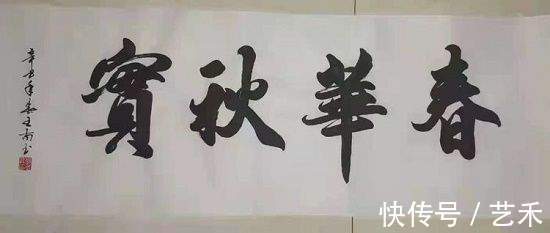 春華秋實
辛丑年春王南书
快传号/艺禾